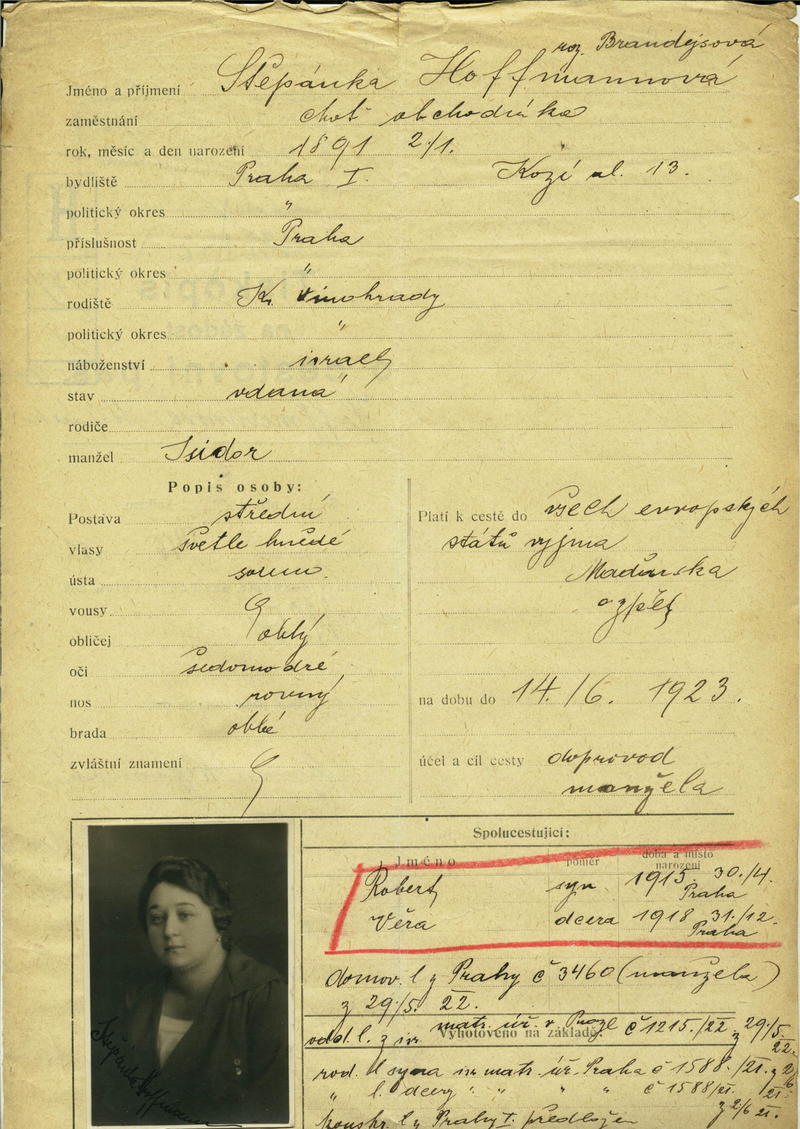 roz. Brandejsová
Jméno a příjmení Štěpánka Hoffmannová
zaměstnání choť obchodníka
rok, měsíc a den narození 1891 2/1.
bydliště Praha I. Kozí ul. 13.
politický okres "
příslušnost Praha
politický okres "
rodiště Kr. Vinohrady
politický okres "
náboženství israel
stav vdaná
rodiče
manžel Isidor
Popis osoby:
Postava střední
vlasy světle hnědé
ústa soum.
vousy
obličej oblý
oči šedomodré
nos rovný
brada oblé
zvláštní znamení
Platí k cestě do všech evropských
států vyjma
Maďarska
a zpět
na dobu do 14./6. 1923.
účel a cíl cesty doprovod
manžela
Spolucestující:
Jméno poměr doba a místo narození
Robert syn 1915 30./4. Praha
Věra dcera 1918 31./12. Praha
domov. l. z Prahy č 3460 (manžela)
z 29/5. 22.
Vyhotoveno na základě:
odd. l. z isr. matr. úř. v Praze č 1215./22 z 29/5. 22.
rod. l. syna isr. matr. úř. Praha č 1588./21. z 2/6 21.
" l. dcery " " " č 1588/21. z 2/6 21.
konskr. l. z Prahy I. předložen
Štěpánka Hoffmannová